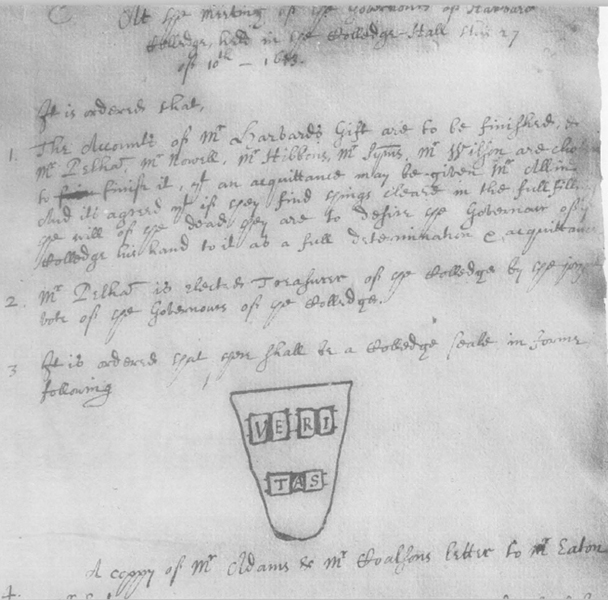 At ye Meeting of ye Governours of Harvard
Colledge, held in ye Colledge-Hall this 27
of 10th — 1643.
It is ordered that,
1. The Accounts of Mr Harvards Gift are to be finished, &
Mr Pelhā, Mr Nowell, Mr Hibbons, Mr Syms, Mr Wilson are chosen
to finish it, yt an acquittance may be given Mr Allin
And it is agreed yt if they find things cleare in the fullfilling
ye will of ye dead, they are to desire ye Governour of ye
Colledge his hand to it as a full determination & acquittance
2. Mr Pelhā is elected Treasurer of ye Colledge by ye joynt
vote of ye Governours of ye Colledge.
3 It is ordered that there shall be a Colledge seale in forme
following
VERI
TAS
A coppy of Mr Adams & Mr Coalsons letter to Mr Eaton
4.